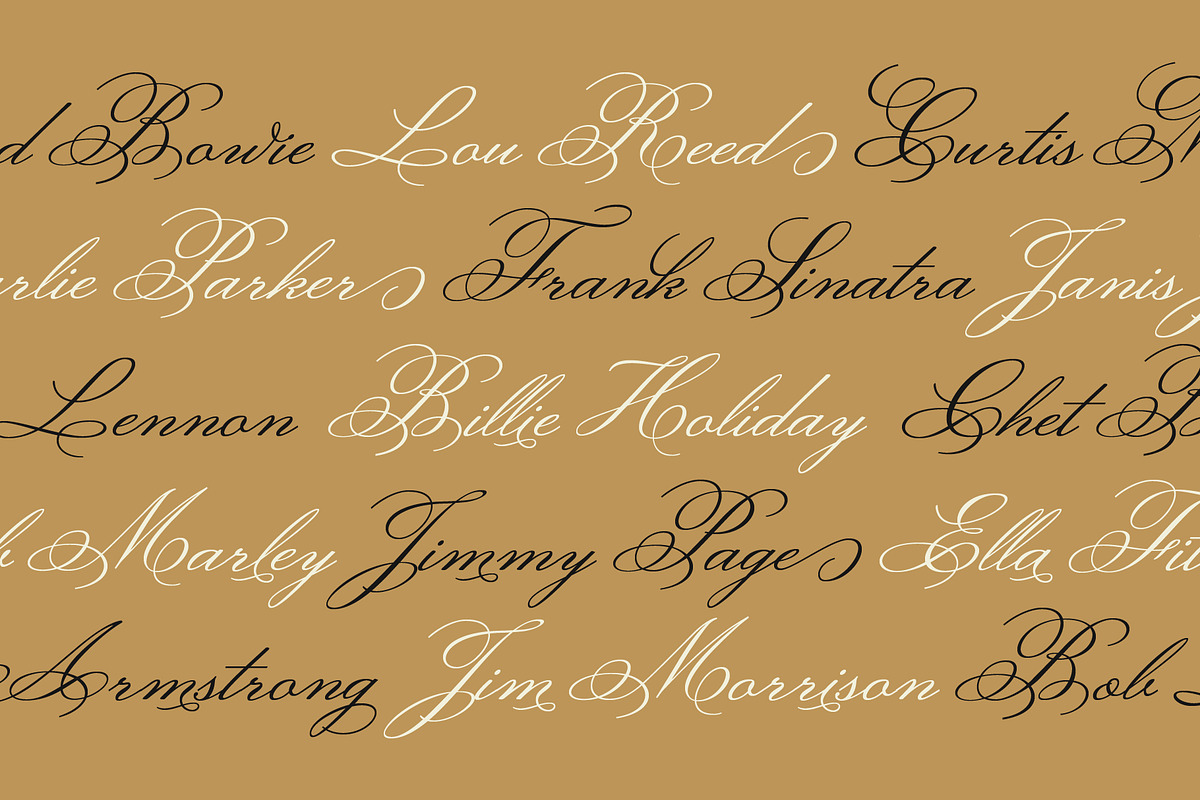 d Bowie Lou Reed Curtis M
arlie Parker Frank Sinatra Janis
Lennon Billie Holiday Chet B
b Marley Jimmy Page Ella Fit
Armstrong Jim Morrison Bob